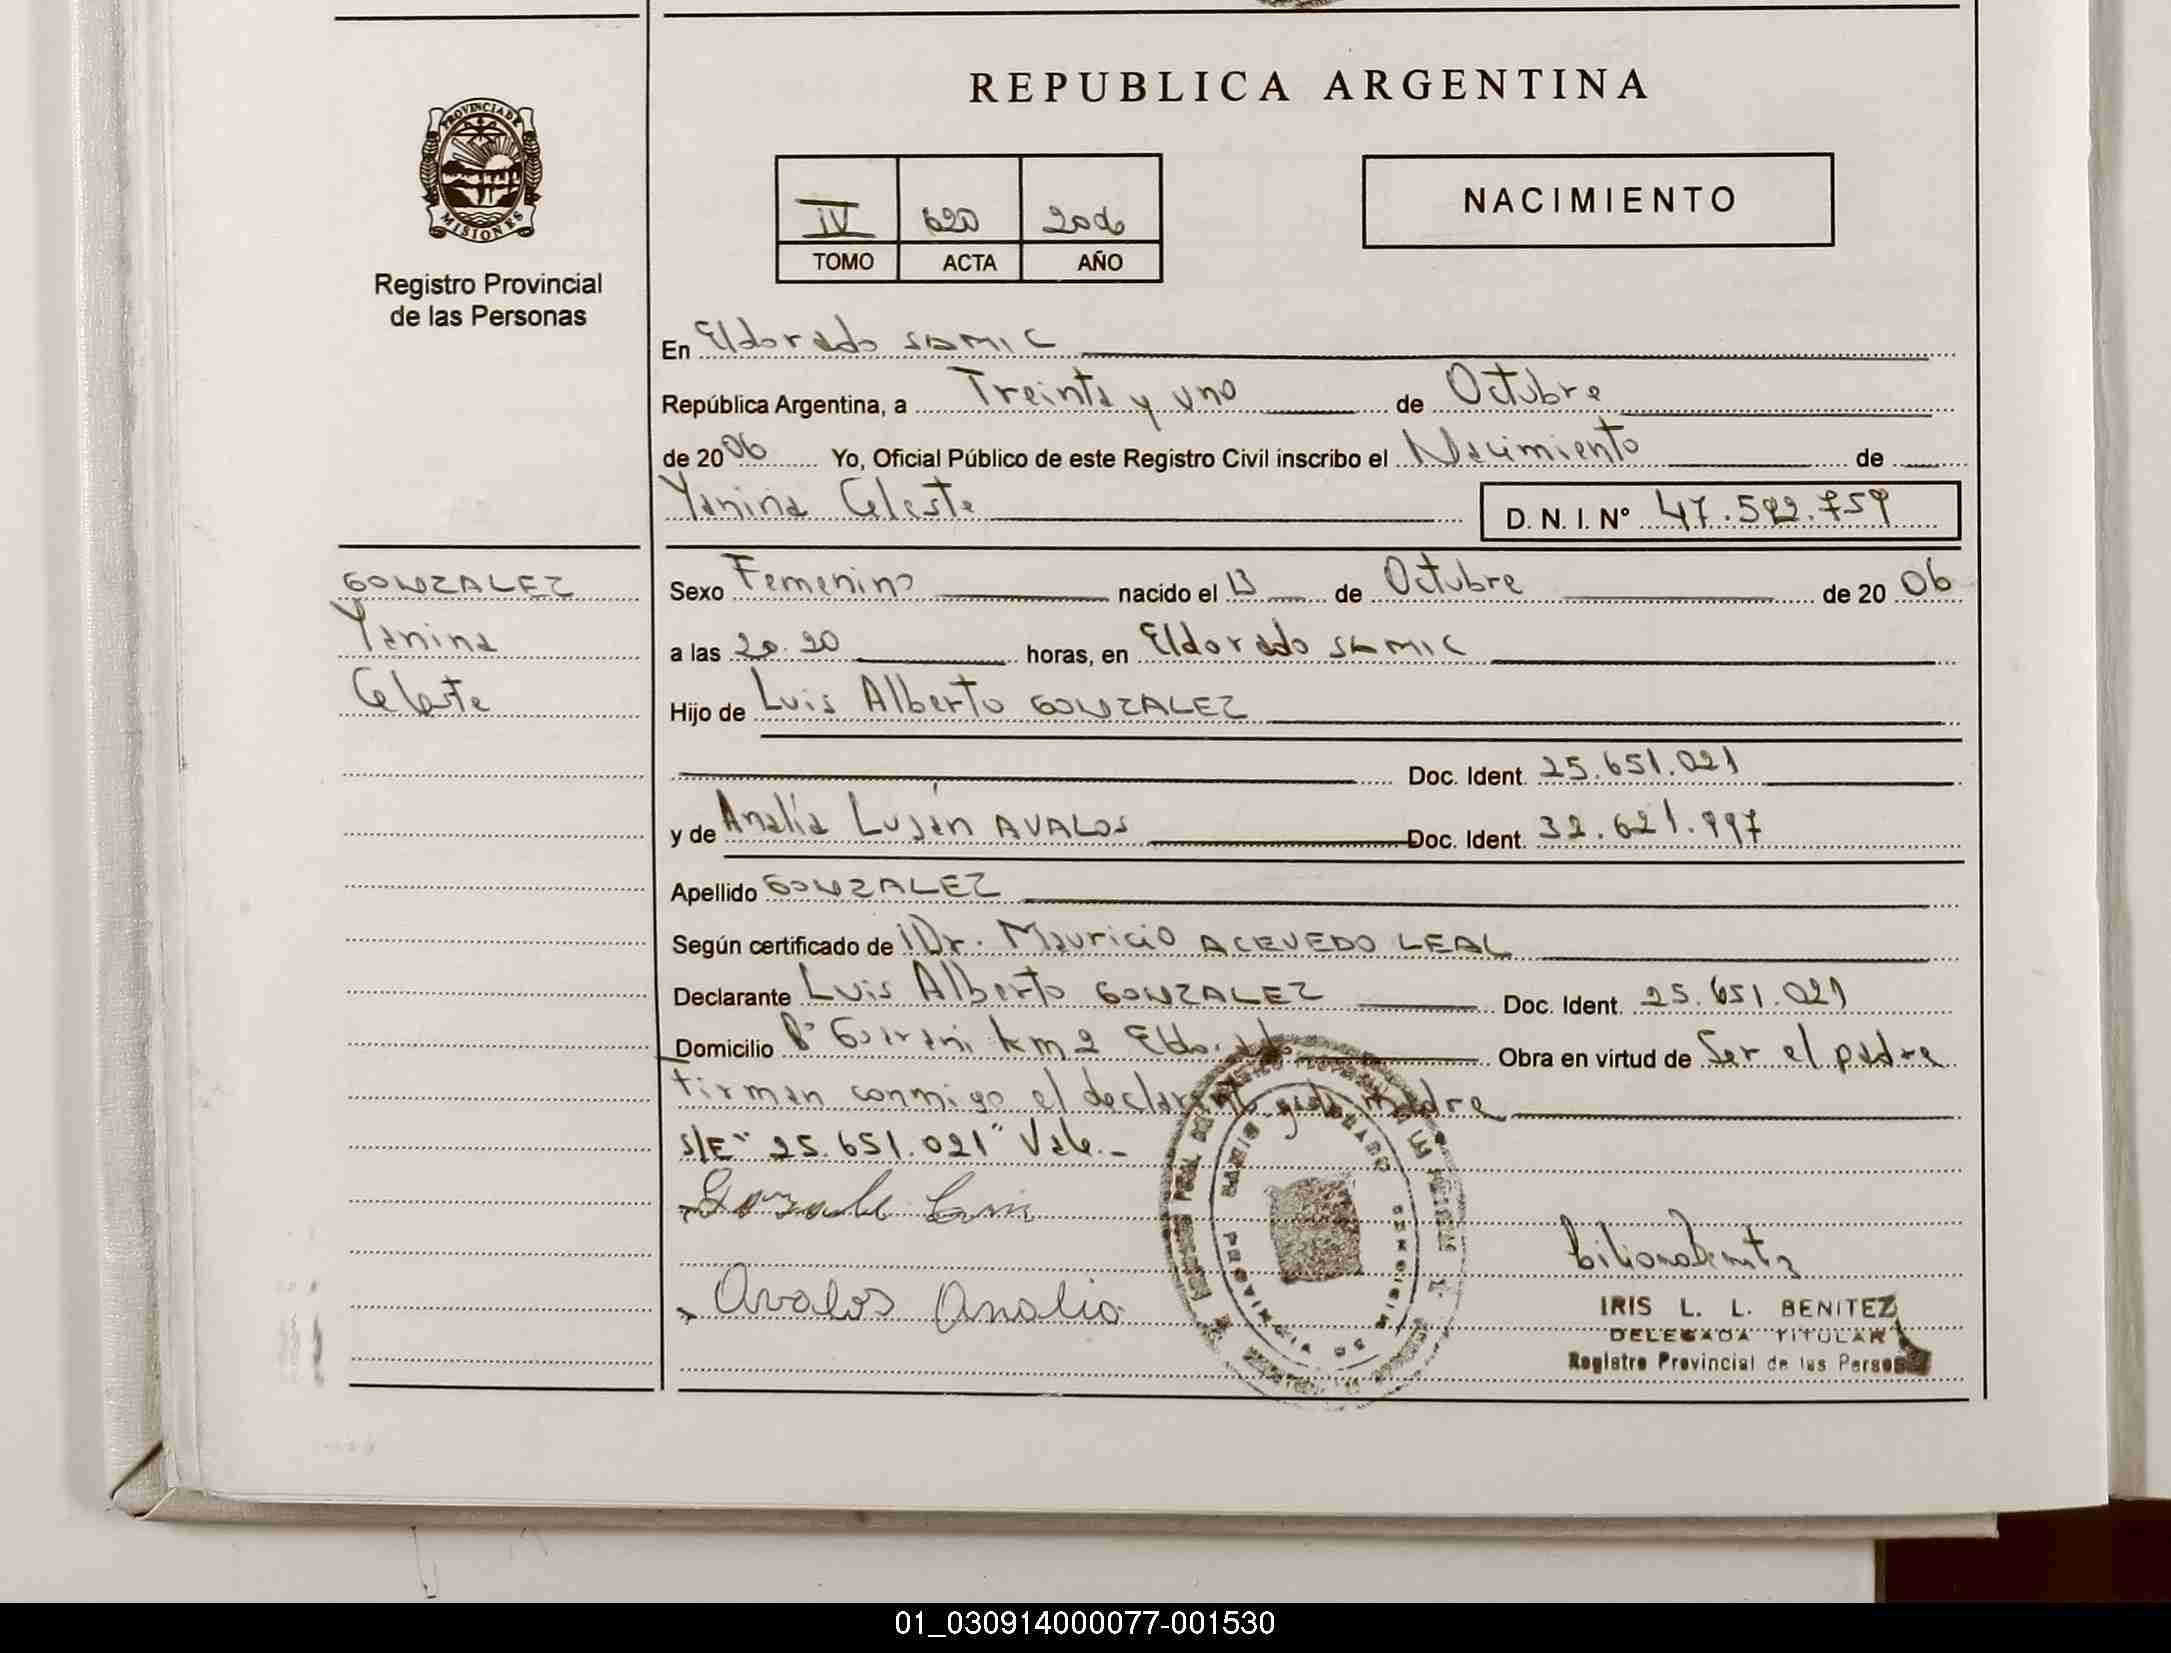 REPUBLICA ARGENTINA
PROVINCIA DE
MISIONES
Registro Provincial
de las Personas
IV 620 2006
TOMO ACTA AÑO
NACIMIENTO
En Eldorado SAMIC
República Argentina, a Treinta y uno de Octubre
de 2006 Yo, Oficial Público de este Registro Civil inscribo el Nacimiento de
Yanina Celeste D. N. I. Nº 47.592.759
GONZALEZ
Yanina
Celeste
Sexo Femenino nacido el 13 de Octubre de 20 06
a las 20.20 horas, en Eldorado SAMIC
Hijo de Luis Alberto GONZALEZ
Doc. Ident. 25.651.021
y de Analía Luján AVALOS Doc. Ident. 32.621.997
Apellido GONZALEZ
Según certificado de Dr. Mauricio ACEVEDO LEAL
Declarante Luis Alberto GONZALEZ Doc. Ident. 25.651.021
Domicilio Bº Guarani km 2 Eldorado Obra en virtud de Ser el padre
Firman conmigo el declarante y la madre
S/E "25.651.021" Vale.-
Gonzale Luis
Avalos Analia
IRIS L. L. BENITEZ
DELEGADA TITULAR
Registro Provincial de las Personas
01_030914000077-001530